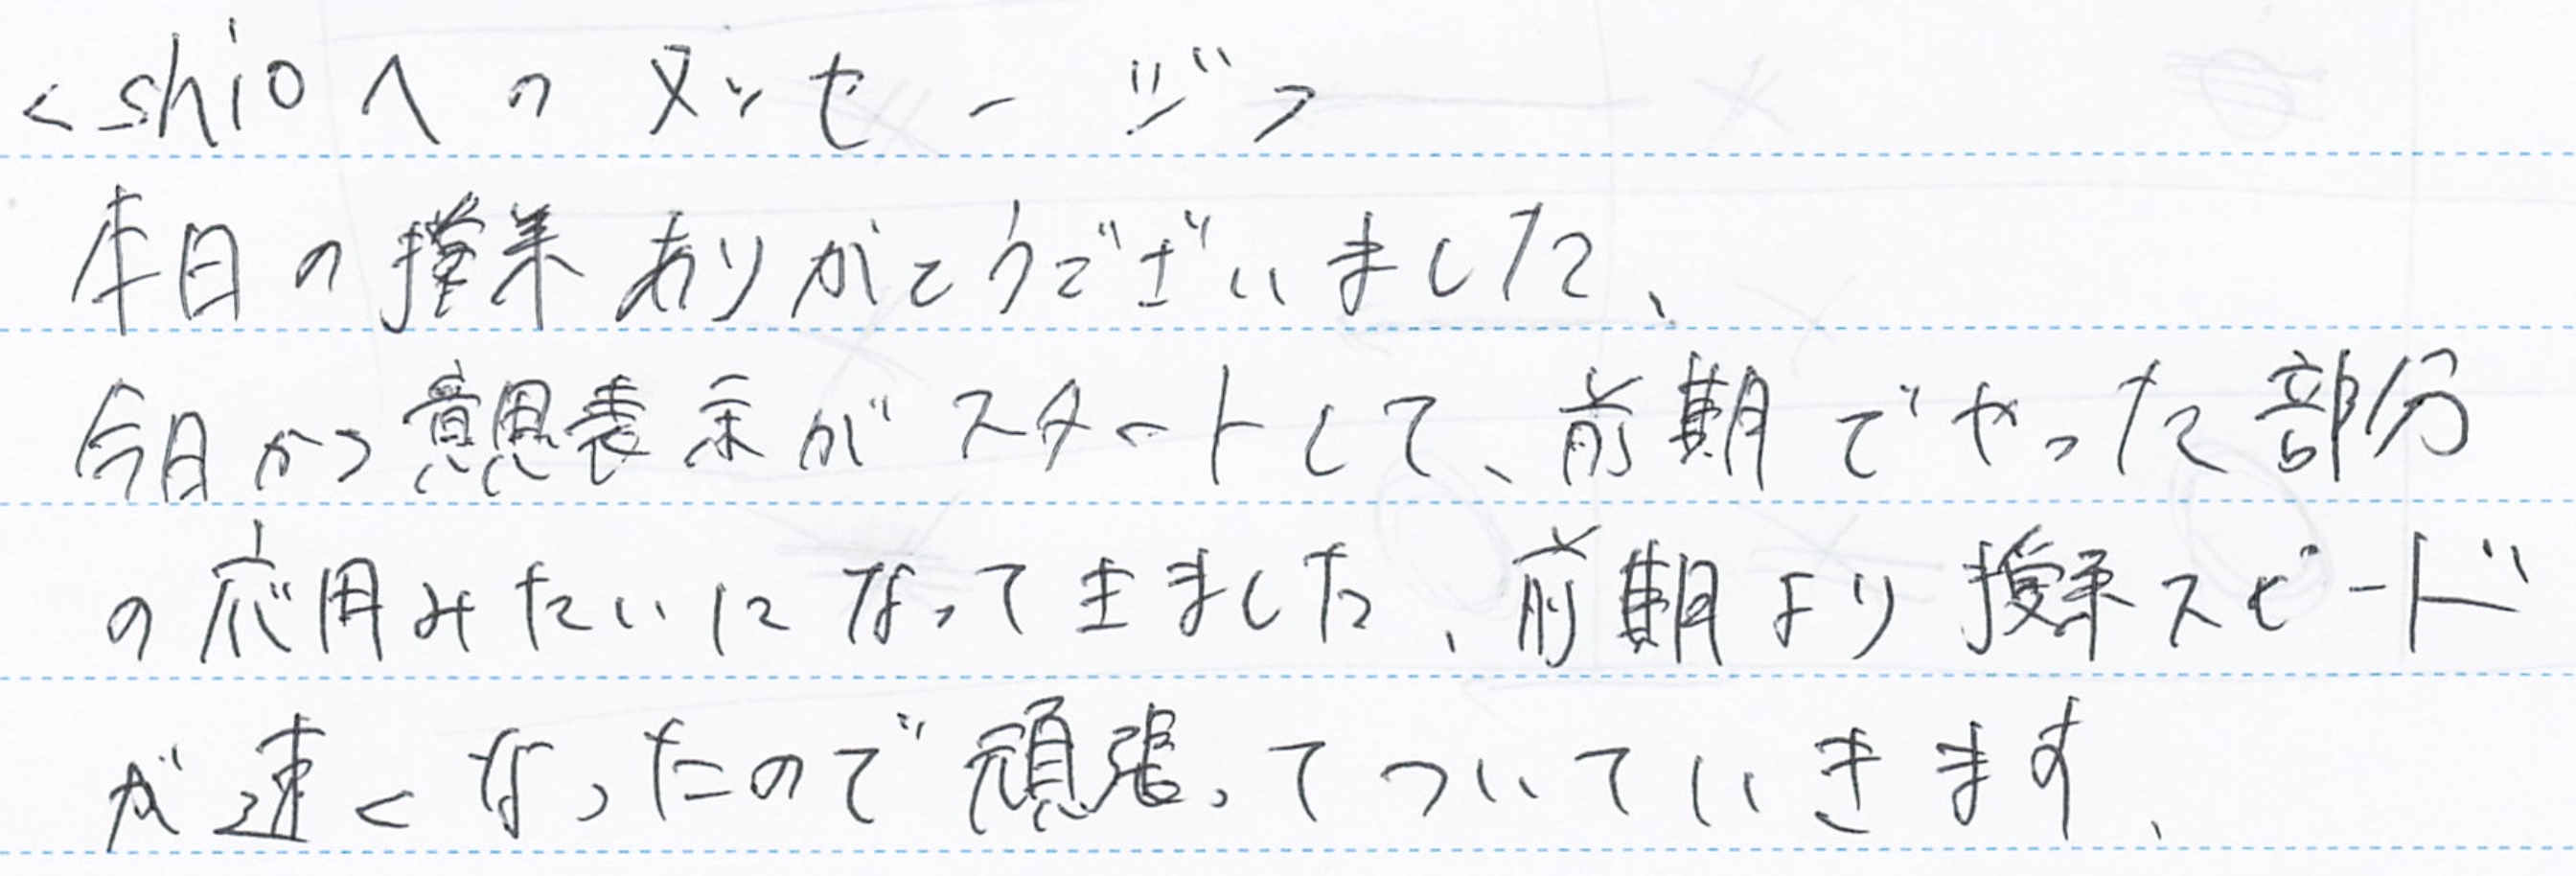 <shioへのメッセージ>
本日の授業ありがとうございました、
今日から意思表示がスタートして、前期でやった部分
の応用みたいになってきました、前期より授業スピード
が速くなったので頑張ってついていきます、